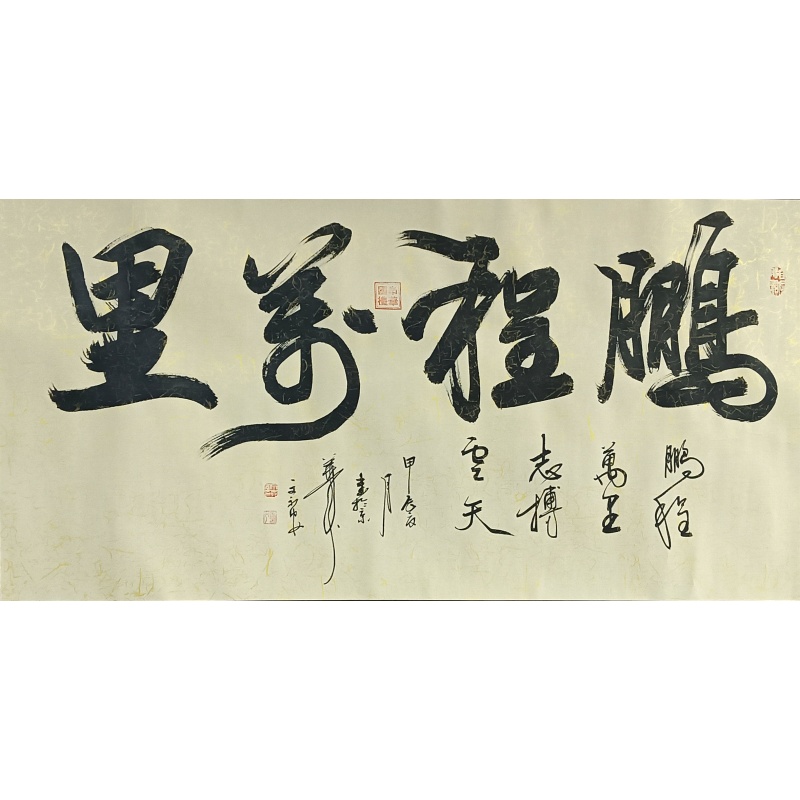 鵬程萬里
鵬程
萬里
志搏
雲天
甲辰
月
書於京